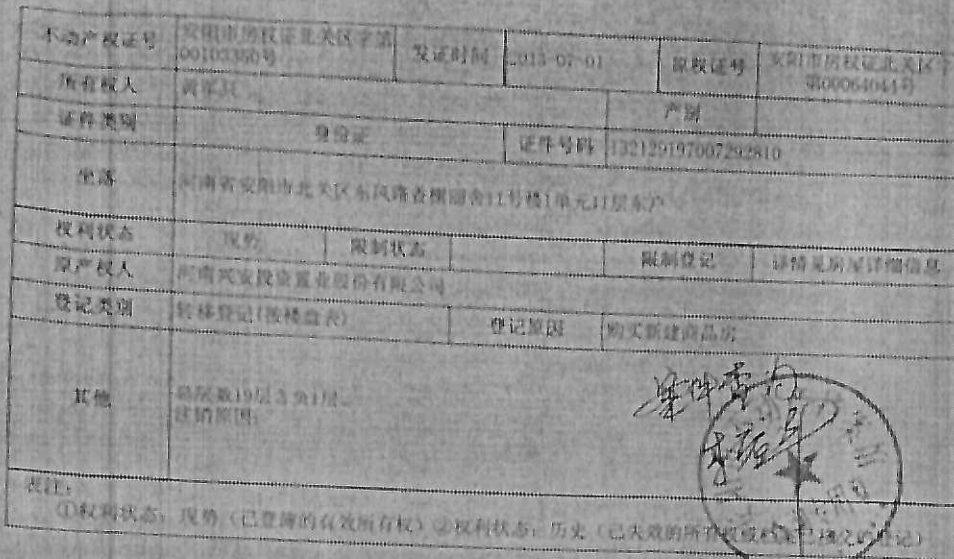 不动产权证号 安阳市房权证北关区字第00103350号 发证时间 2013-07-01 原权证号 安阳市房权证北关区字第00064044号
所有权人 产别
证件类别 身份证 证件号码 132129197007292810
坐落 河南省安阳市北关区东风路香榭丽舍11号楼1单元11层东户
权利状态 现势 限制状态 限制登记 详情见房屋详细信息
原产权人 河南兴安投资置业股份有限公司
登记类别 转移登记(按楼盘表) 登记原因 购买新建商品房
其他 总层数19层 负1层
注销原因:
案件查询
表注:
①权利状态: 现势 (已登簿的有效所有权) ②权利状态: 历史 (已失效的所有权